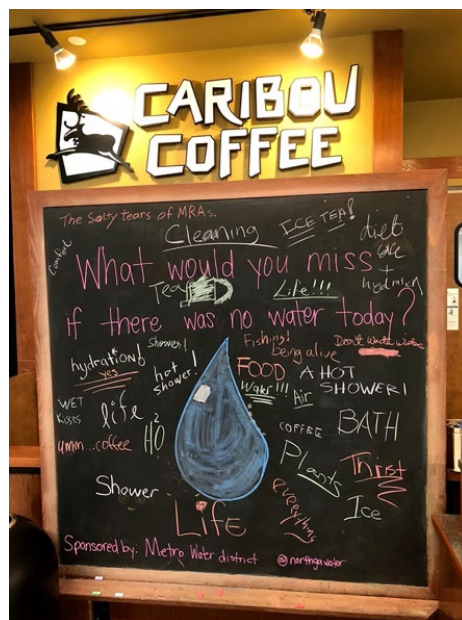 CARIBOU
COFFEE
The Salty tears of MRAs.
Cleaning
ICE TEA!
diet
coke
+
hydration
Comfort
What would you miss
Tea
Life!!!
if there was no water today?
Showers!
Fishing!
being alive
Don't Waste Water
hydration!
yes
hot
shower!
FOOD
A HOT
SHOWER!
Air
WET
Kisses
life
H2O
COFFEE
BATH
ummm..coffee
Plants
Thirst
Shower
everything
Ice
LIFE
Sponsored by: Metro Water district
@northgawater